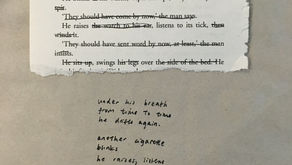 spit.
'They should have come by now,' the man says.
He raises the watch to his ear, listens to its tick, then
winds it.
'They should have sent word by now, at least,' the man
insists.
He sits up, swings his legs over the side of the bed. He
under his breath
from time to time
he drifts again.
another cigarette
blinks
he raises, listens